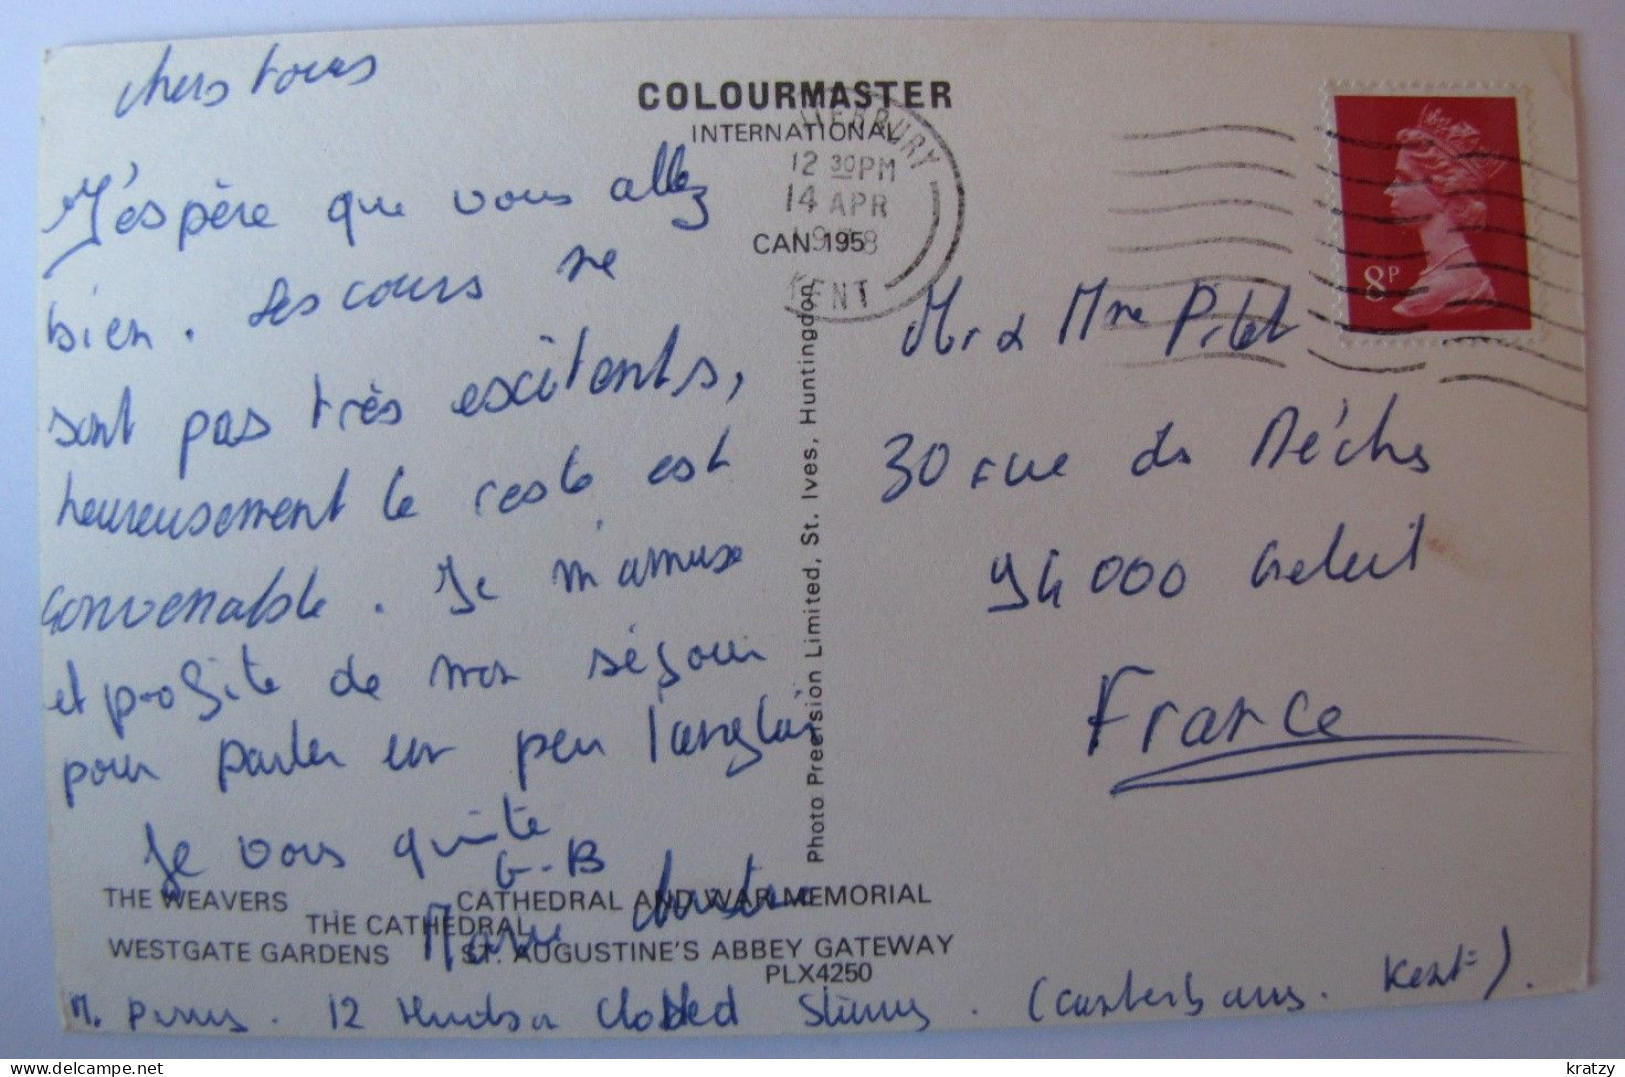 chers tous
J'éspère que vous allez
bien. Les cours ne
sont pas très exitents,
heureusement le reste est
convenable. Je m'amuse
et profite de mon séjour
pour parler un peu l'anglais
Je vous quitte
G-B
Marie
COLOURMASTER
INTERNATIONAL
CAN 195
TERBURY
12 30PM
14 APR
KENT
8P
Mr & Mme Pilet
30 rue de Mèche
94000 Creteil
France
Photo Precision Limited, St. Ives, Huntingdon
THE WEAVERS
CATHEDRAL AND WAR MEMORIAL
THE CATHEDRAL
WESTGATE GARDENS
ST. AUGUSTINE'S ABBEY GATEWAY
PLX4250
M. 12 Kent).
kratzy